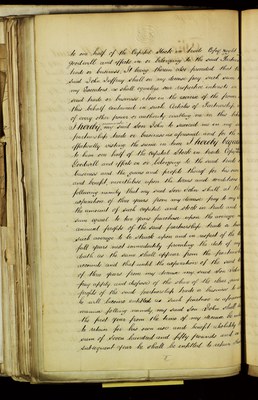 to one half of the Capital Stock in trade Copy right
goodwill and effects in or belonging to the said Partner
trade or business, It being therein also provided that the
said John Jaffray shall on my decease pay such sum
my Executors as shall equalize our respective interests in
said trade or business close on the exercise of the power
this behalf contained in such Articles of Partnership
of every other power or authority enabling me in this be
I hereby my said Son John to succeed me in my
partnership trade or business as aforesaid and for the
effectually vesting the same in him I hereby bequeath
to him one half of the Capital Stock in trade Copy
Goodwill and effects in or belonging to the said trade
business and the gains and profits thereof for his own
and benefit nevertheless upon the terms and conditions
following namely that my said Son John shall at the
expiration of three years from my decease pay to my
the amount of such capital and stock in trade and
sum equal to two years purchase upon the average
annual profits of the said partnership trade or business
such average to be struck upon and in respect of the
full years next immediately preceding the date of my
death as the same shall appear from the partnership
accounts and that until the expiration of the said term
of three years from my decease my said Son John
pay apply and dispose of the share of the clear gains
profits of the said partnership trade or business to
he will become entitled as such purchase as aforesaid
manner following namely my said Son John shall
the first year from the time of my decease be
to retain for his own use and benefit absolutely
sum of Seven hundred and fifty pounds and in
subsequent year he shall be entitled to retain